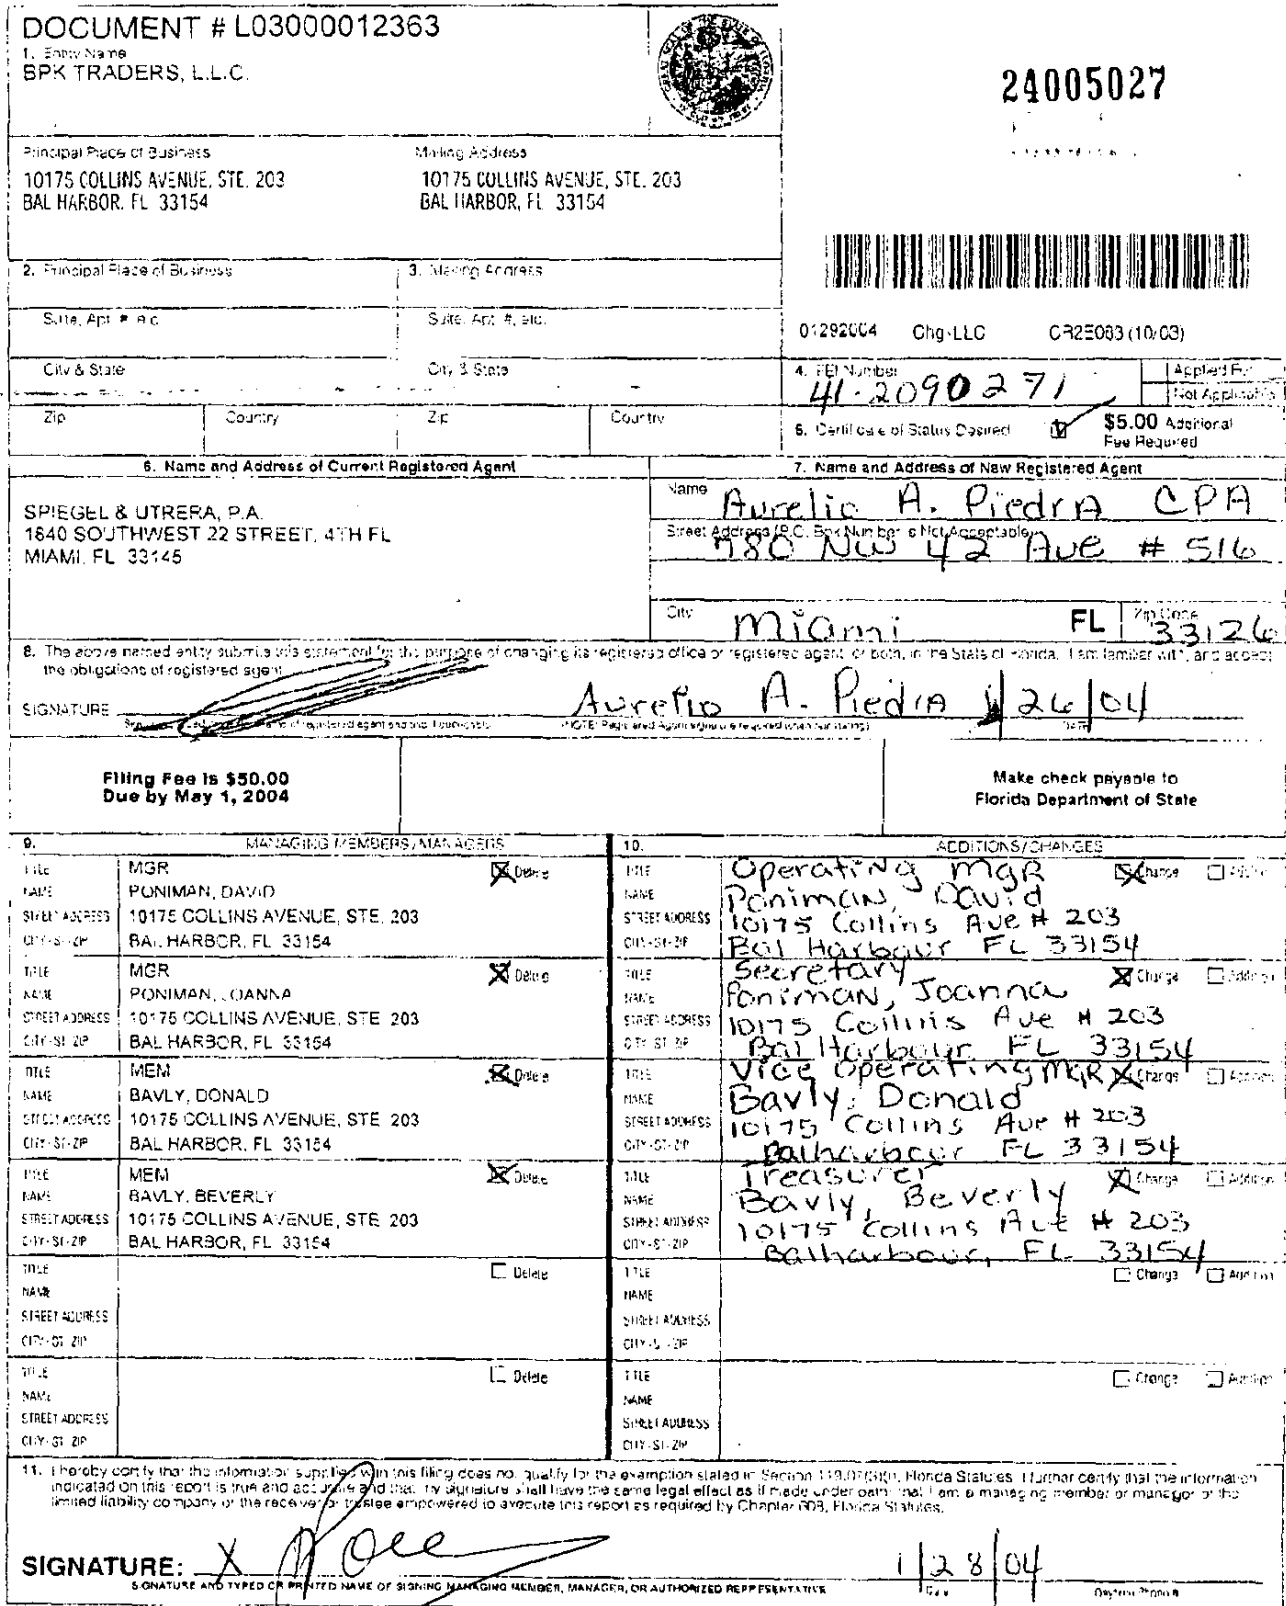 DOCUMENT # L03000012363
1. Entity Name
BPK TRADERS, L.L.C.
24005027
Principal Place of Business
10175 COLLINS AVENUE, STE. 203
BAL HARBOR, FL 33154
Mailing Address
10175 COLLINS AVENUE, STE. 203
BAL HARBOR, FL 33154
2. Principal Place of Business
3. Mailing Address
Suite, Apt. #, etc.
Suite, Apt. #, etc.
City & State
City & State
Zip Country
Zip Country
01292004 Chg-LLC CR2E083 (10/03)
4. FEI Number
41-2090271
Applied For
Not Applicable
5. Certificate of Status Desired
$5.00 Additional
Fee Required
6. Name and Address of Current Registered Agent
SPIEGEL & UTRERA, P.A.
1840 SOUTHWEST 22 STREET, 4TH FL
MIAMI, FL 33145
7. Name and Address of New Registered Agent
Name Aurelio A. Piedra CPA
Street Address (P.O. Box Number is Not Acceptable)
780 NW 42 Ave # 516
City Miami FL Zip Code 33126
8. The above named entity submits this statement for the purpose of changing its registered office or registered agent, or both, in the State of Florida. I am familiar with, and accept
the obligations of registered agent.
SIGNATURE Aurelio A. Piedra 1/26/04
(NOTE: Registered Agent signature required when reinstating)
Filing Fee is $50.00
Due by May 1, 2004
Make check payable to
Florida Department of State
9. MANAGING MEMBERS/MANAGERS
TITLE MGR Delete
NAME PONIMAN, DAVID
STREET ADDRESS 10175 COLLINS AVENUE, STE. 203
CITY-ST-ZIP BAL HARBOR, FL 33154
TITLE MGR Delete
NAME PONIMAN, JOANNA
STREET ADDRESS 10175 COLLINS AVENUE, STE 203
CITY-ST-ZIP BAL HARBOR, FL 33154
TITLE MEM Delete
NAME BAVLY, DONALD
STREET ADDRESS 10175 COLLINS AVENUE, STE 203
CITY-ST-ZIP BAL HARBOR, FL 33154
TITLE MEM Delete
NAME BAVLY, BEVERLY
STREET ADDRESS 10175 COLLINS AVENUE, STE 203
CITY-ST-ZIP BAL HARBOR, FL 33154
TITLE Delete
NAME
STREET ADDRESS
CITY-ST-ZIP
TITLE Delete
NAME
STREET ADDRESS
CITY-ST-ZIP
10. ADDITIONS/CHANGES
TITLE Operating MGR Change Addition
NAME Poniman, David
STREET ADDRESS 10175 Collins Ave # 203
CITY-ST-ZIP Bal Harbour FL 33154
TITLE Secretary Change Addition
NAME Poniman, Joanna
STREET ADDRESS 10175 Collins Ave # 203
CITY-ST-ZIP Bal Harbour FL 33154
TITLE Vice Operating MGR Change Addition
NAME Bavly, Donald
STREET ADDRESS 10175 Collins Ave # 203
CITY-ST-ZIP Balharbour FL 33154
TITLE Treasurer Change Addition
NAME Bavly, Beverly
STREET ADDRESS 10175 Collins Ave # 203
CITY-ST-ZIP Balharbour, FL 33154
TITLE Change Addition
NAME
STREET ADDRESS
CITY-ST-ZIP
TITLE Change Addition
NAME
STREET ADDRESS
CITY-ST-ZIP
11. I hereby certify that the information supplied with this filing does not qualify for the exemption stated in Section 119.07(3)(i), Florida Statutes. I further certify that the information
indicated on this report is true and accurate and that my signature shall have the same legal effect as if made under oath; that I am a managing member or manager of the
limited liability company or the receiver or trustee empowered to execute this report as required by Chapter 608, Florida Statutes.
SIGNATURE: X 1/28/04
SIGNATURE AND TYPED OR PRINTED NAME OF SIGNING MANAGING MEMBER, MANAGER, OR AUTHORIZED REPRESENTATIVE Date Daytime Phone #